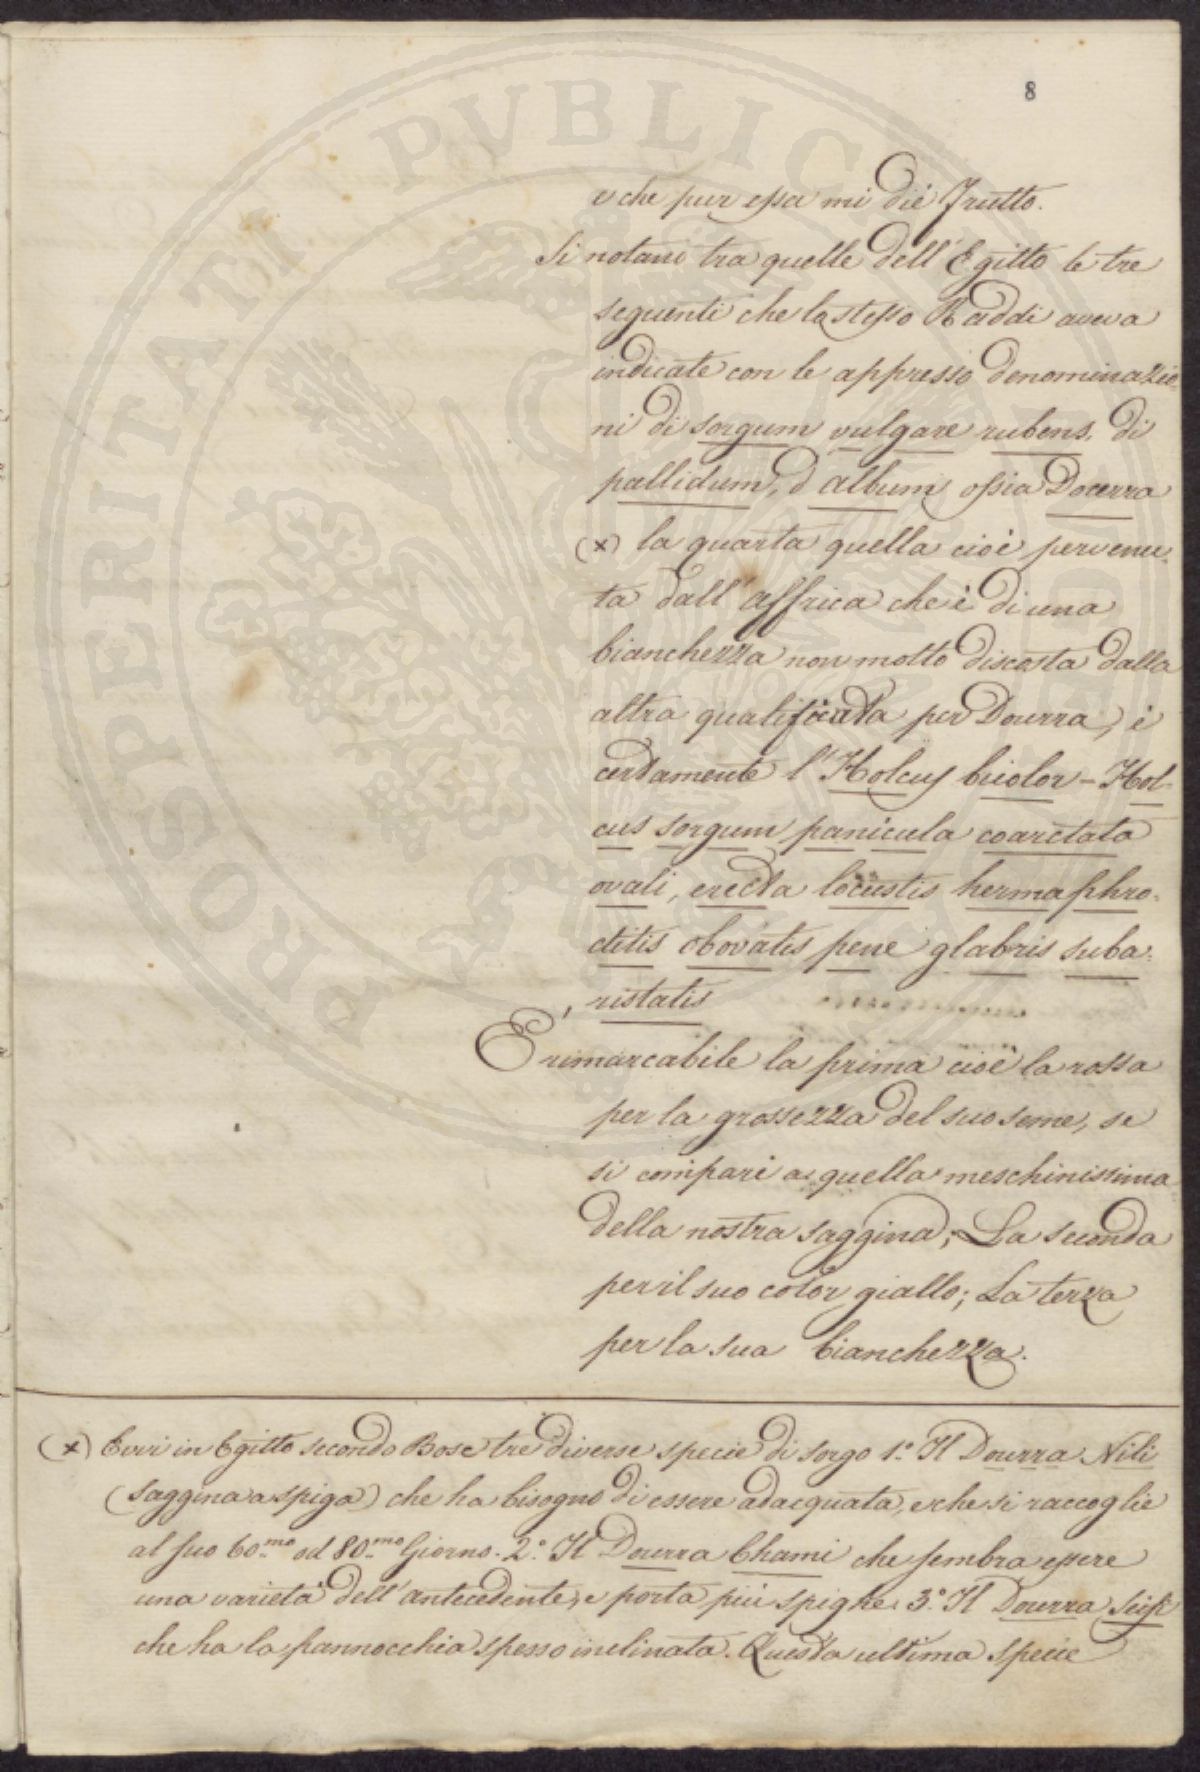 8
e che pur essa mi diè frutto.
Si notano tra quelle dell'Egitto le tre
seguenti che lo stesso Raddi aveva
indicate con le appresso denominazio-
ni di sorgum vulgare rubens, di
pallidum, d'album ossia Dourra
(x) la quarta quella cioè pervenu-
ta dall'Affrica che è di una
bianchezza non molto discosta dalla
altra qualificata per Dourra, è
certamente l'Holcus bicolor - Hol-
cus sorgum panicula coarctata
ovali, erecta locustis hermaphro-
ditis obovatis pene glabris suba-
ristatis
È rimarcabile la prima cioè la rossa
per la grossezza del suo seme, se
si compari a quella meschinissima
della nostra saggina; La seconda
per il suo color giallo; La terza
per la sua bianchezza.
(x) Evvi in Egitto secondo Bosc tre diverse specie di sorgo 1.° Il Dourra Nili
(saggina a spiga) che ha bisogno di essere adacquata, e che si raccoglie
al suo 60.mo od 80.mo Giorno. 2.° Il Dourra Chami che sembra essere
una varietà dell'antecedente, e porta più spighe. 3.° Il Dourra Seifi
che ha la pannocchia spesso inclinata. Questa ultima specie
PROSPERITATI PVBLICAE